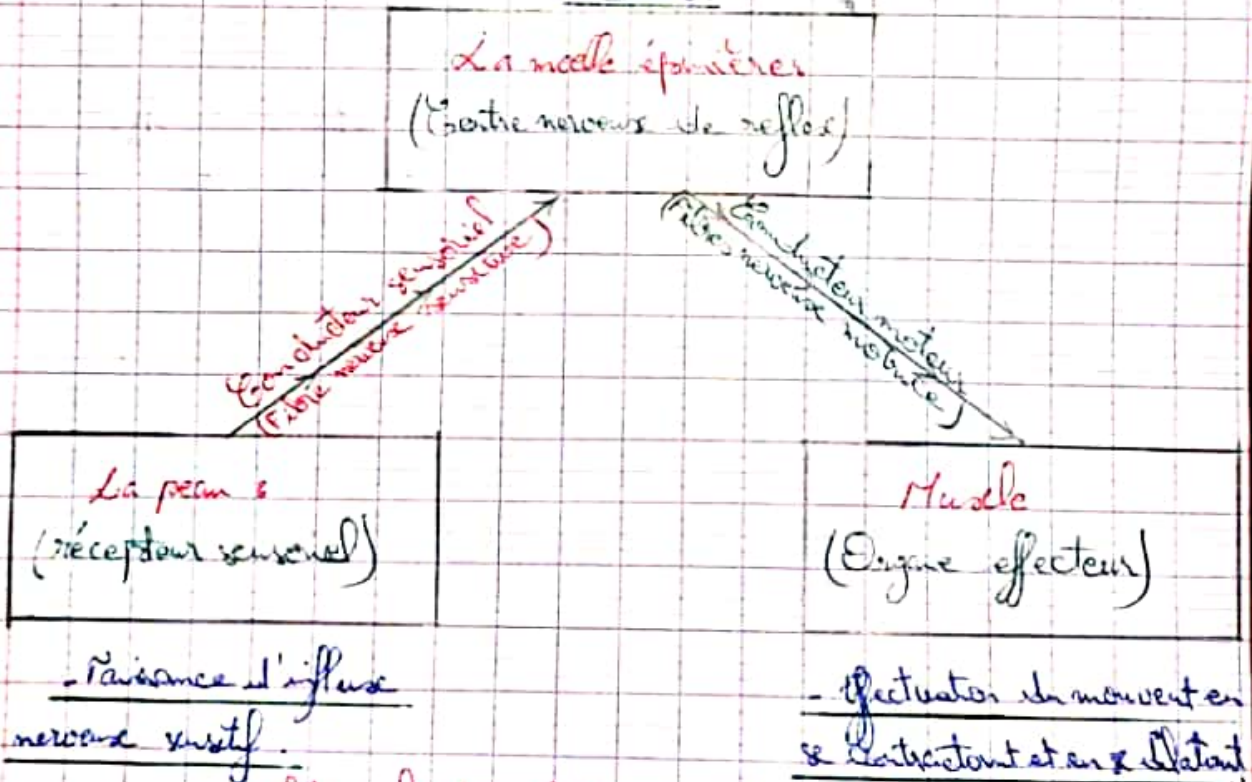 La moelle épinière
(Centre nerveux de reflex)
Conducteur sensoriel
(Fibre nerveuse sensitive)
Conducteur moteur
(Fibre nerveuse motrice)
La peau :
(récepteur sensoriel)
Muscle
(Organe effecteur)
- Naissance d'influx
nerveux sensitif.
- Effectuation du mouvent en
se contractant et en se